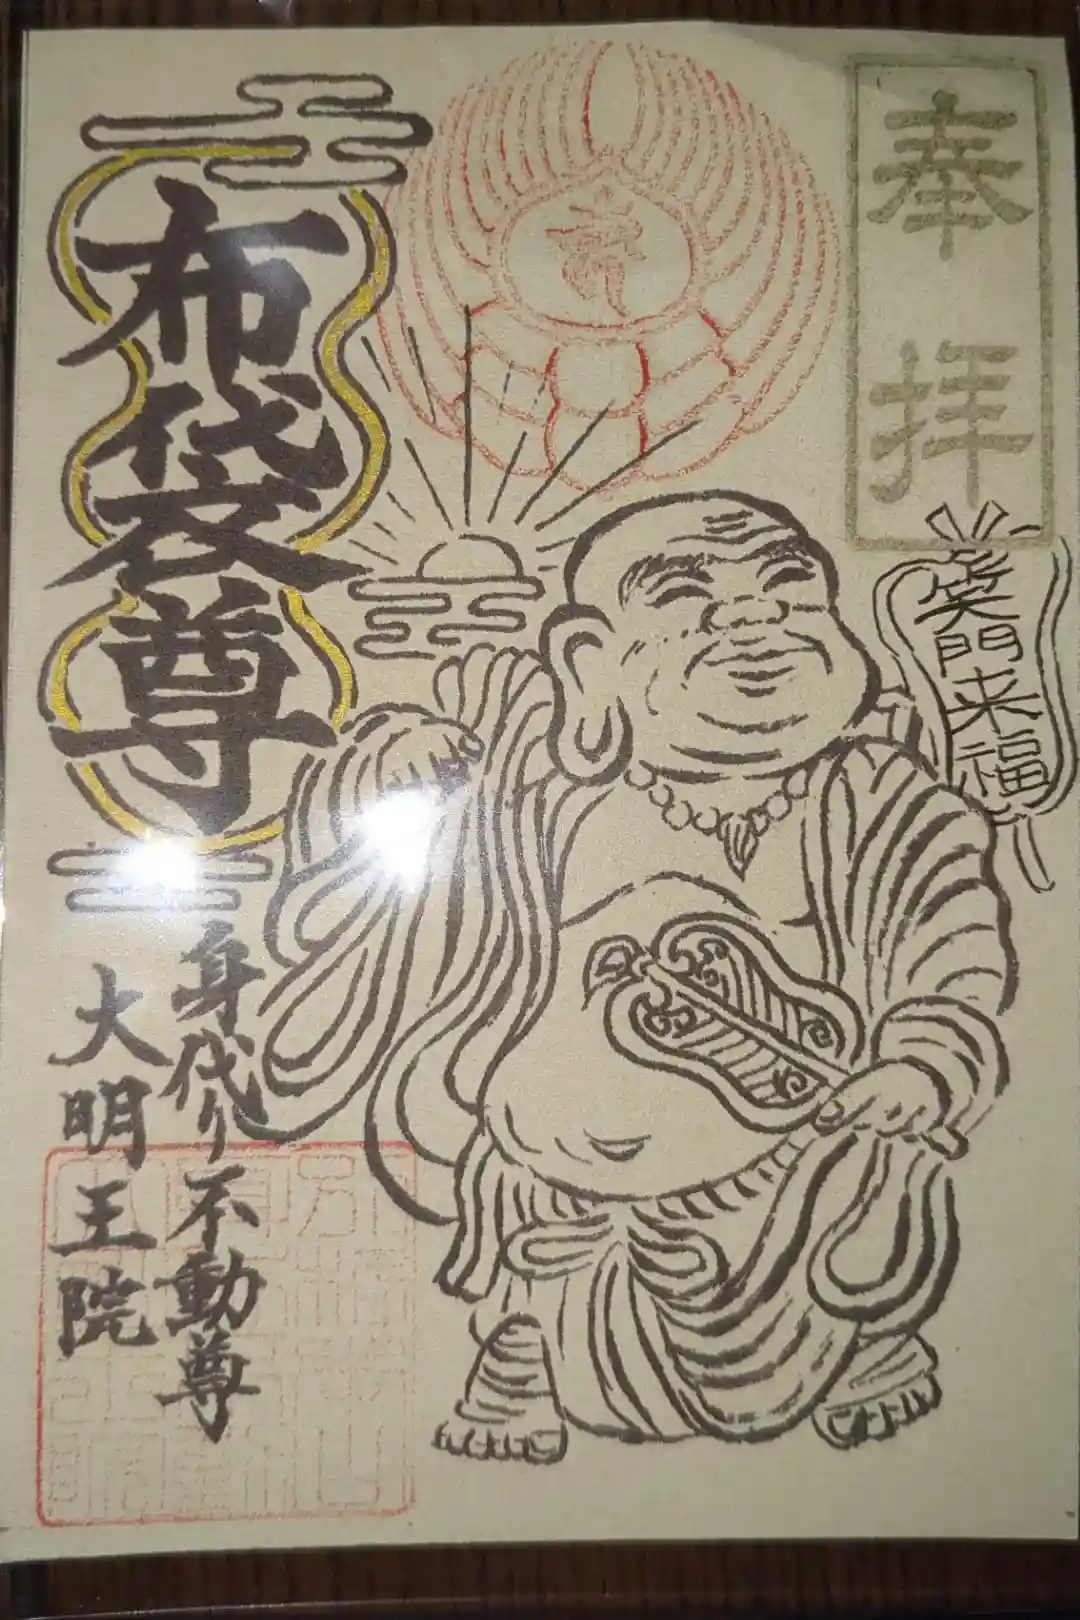 奉拝
笑門来福
布袋尊
身代り不動尊
大明王院